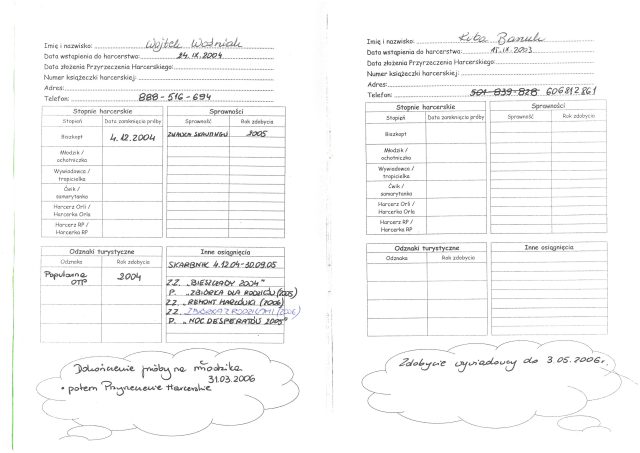 Imię i nazwisko: Wojtek Woźniak
Data wstąpienia do harcerstwa: 24.IX.2004
Data złożenia Przyrzeczenia Harcerskiego:
Numer książeczki harcerskiej:
Adres:
Telefon: 888-516-694
Stopnie harcerskie Sprawności
Stopień Data zamknięcia próby Sprawność Rok zdobycia
Biszkopt 4.12.2004 ZNAWCA SKAUTINGU 2005
Młodzik /
ochotniczka
Wywiadowca /
tropicielka
Ćwik /
samarytanka
Harcerz Orli /
Harcerka Orla
Harcerz RP /
Harcerka RP
Odznaki turystyczne Inne osiągnięcia
Odznaka Rok zdobycia SKARBNIK 4.12.04-30.09.05
Popularna 2004
OTP
ZZ. „BIESZCZADY 2004"
P. „ZBIÓRKA DLA RODZICÓW (2005)
ZZ. „REMONT HARCÓWKI (2006)
ZZ. ZBIÓRKA Z RODZICAMI (2006)
P. „NOC DESPERATÓW 2005"
Dokończenie próby na młodzika
31.03.2006
• potem Przyrzeczenie Harcerskie
Imię i nazwisko: Kuba
Data wstąpienia do harcerstwa: 15.IX.2003
Data złożenia Przyrzeczenia Harcerskiego:
Numer książeczki harcerskiej:
Adres:
Telefon: 501-839-828 606812861
Stopnie harcerskie Sprawności
Stopień Data zamknięcia próby Sprawność Rok zdobycia
Biszkopt
Młodzik /
ochotniczka
Wywiadowca /
tropicielka
Ćwik /
samarytanka
Harcerz Orli /
Harcerka Orla
Harcerz RP /
Harcerka RP
Odznaki turystyczne Inne osiągnięcia
Odznaka Rok zdobycia
Zdobycie wywiadowcy do 3.05.2006r.